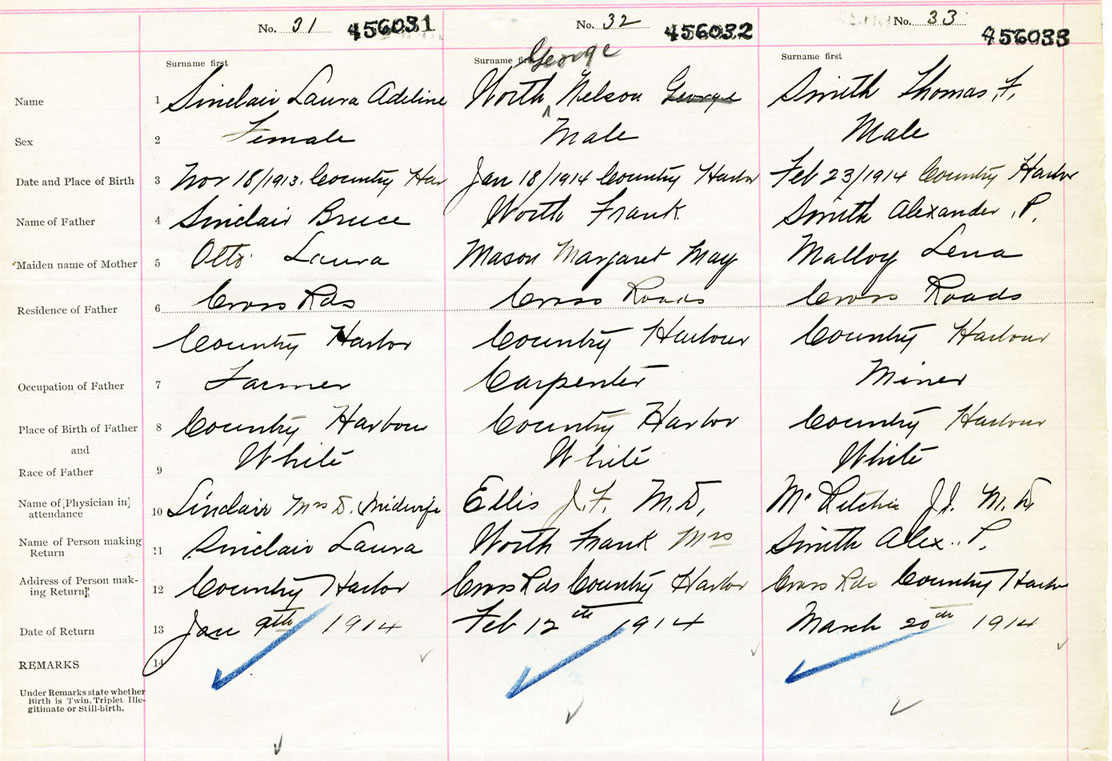 No. 31 456031 No. 32 456032 No. 33 456033
George
Surname first Surname first Surname first
Name 1 Sinclair Laura Adeline Worth ^ Nelson George Smith Thomas, F.
Sex 2 Female Male Male
Date and Place of Birth 3 Nov 18/1913. Country Har Jan 18/1914 Country Harbor Feb 23/1914 Country Harbor
Name of Father 4 Sinclair Bruce Worth Frank Smith Alexander, P.
Maiden name of Mother 5 Otto Laura Mason Margaret May Malloy Lena
Residence of Father 6 Cross Rds Cross Roads Cross Roads
Country Harbor Country Harbour Country Harbour
Occupation of Father 7 Farmer Carpenter Miner
Place of Birth of Father 8 Country Harbour Country Harbor Country Harbour
and
Race of Father 9 White White White
Name of [Physician in] 10 Sinclair Mrs D. Midwife Ellis J. F. M.D. J.J. M.D.
attendance
Name of Person making 11 Sinclair Laura Worth Frank Mrs Smith Alex.. P.
Return
Address of Person mak- 12 Country Harbor Cross Rds Country Harbor Cross Rds Country Harbor
ing Return]
Date of Return 13 Jan 9th 1914 Feb 12th 1914 March 20th 1914
REMARKS 14
Under Remarks state whether
Birth is Twin, Triplet Ille-
gitimate or Still-birth.